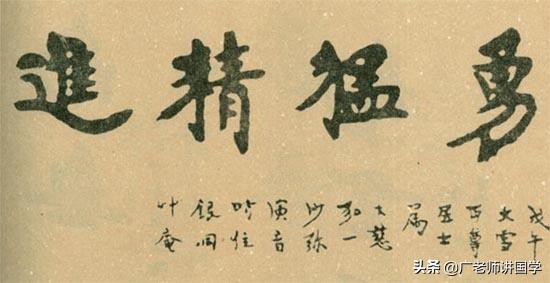 勇猛精進
戊午
大雪
丏尊
居士
屬
大慈
弘一
沙弥
演音
時住
銀洞
叶庵
头条 @广老师讲国学